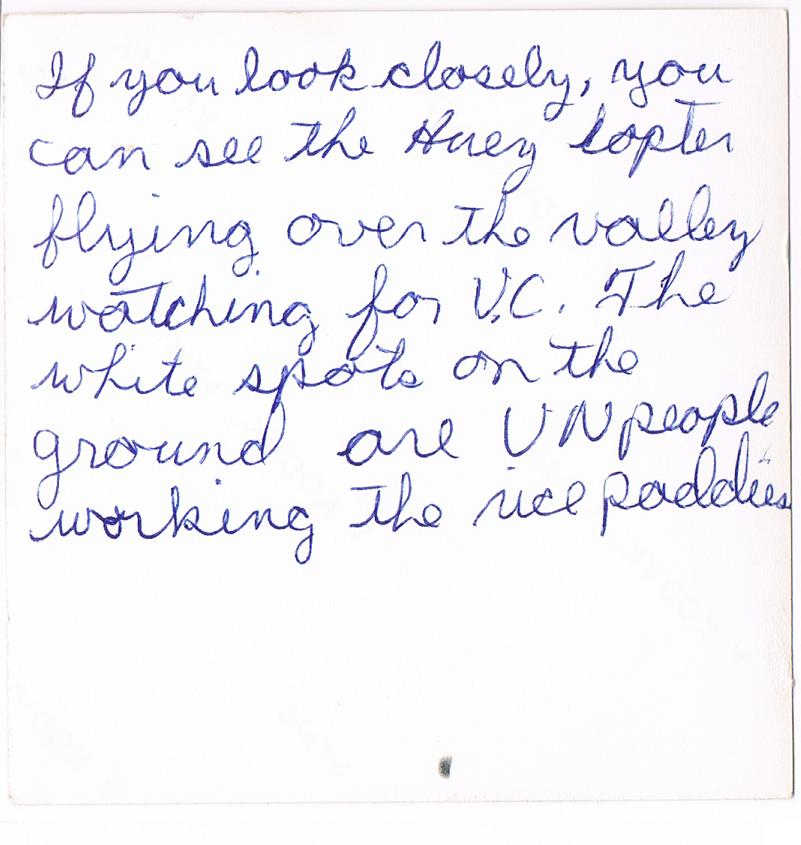 If you look closely, you
can see the Huey copter
flying over the valley
watching for V.C. The
white spots on the
ground are VN people
working the rice paddies